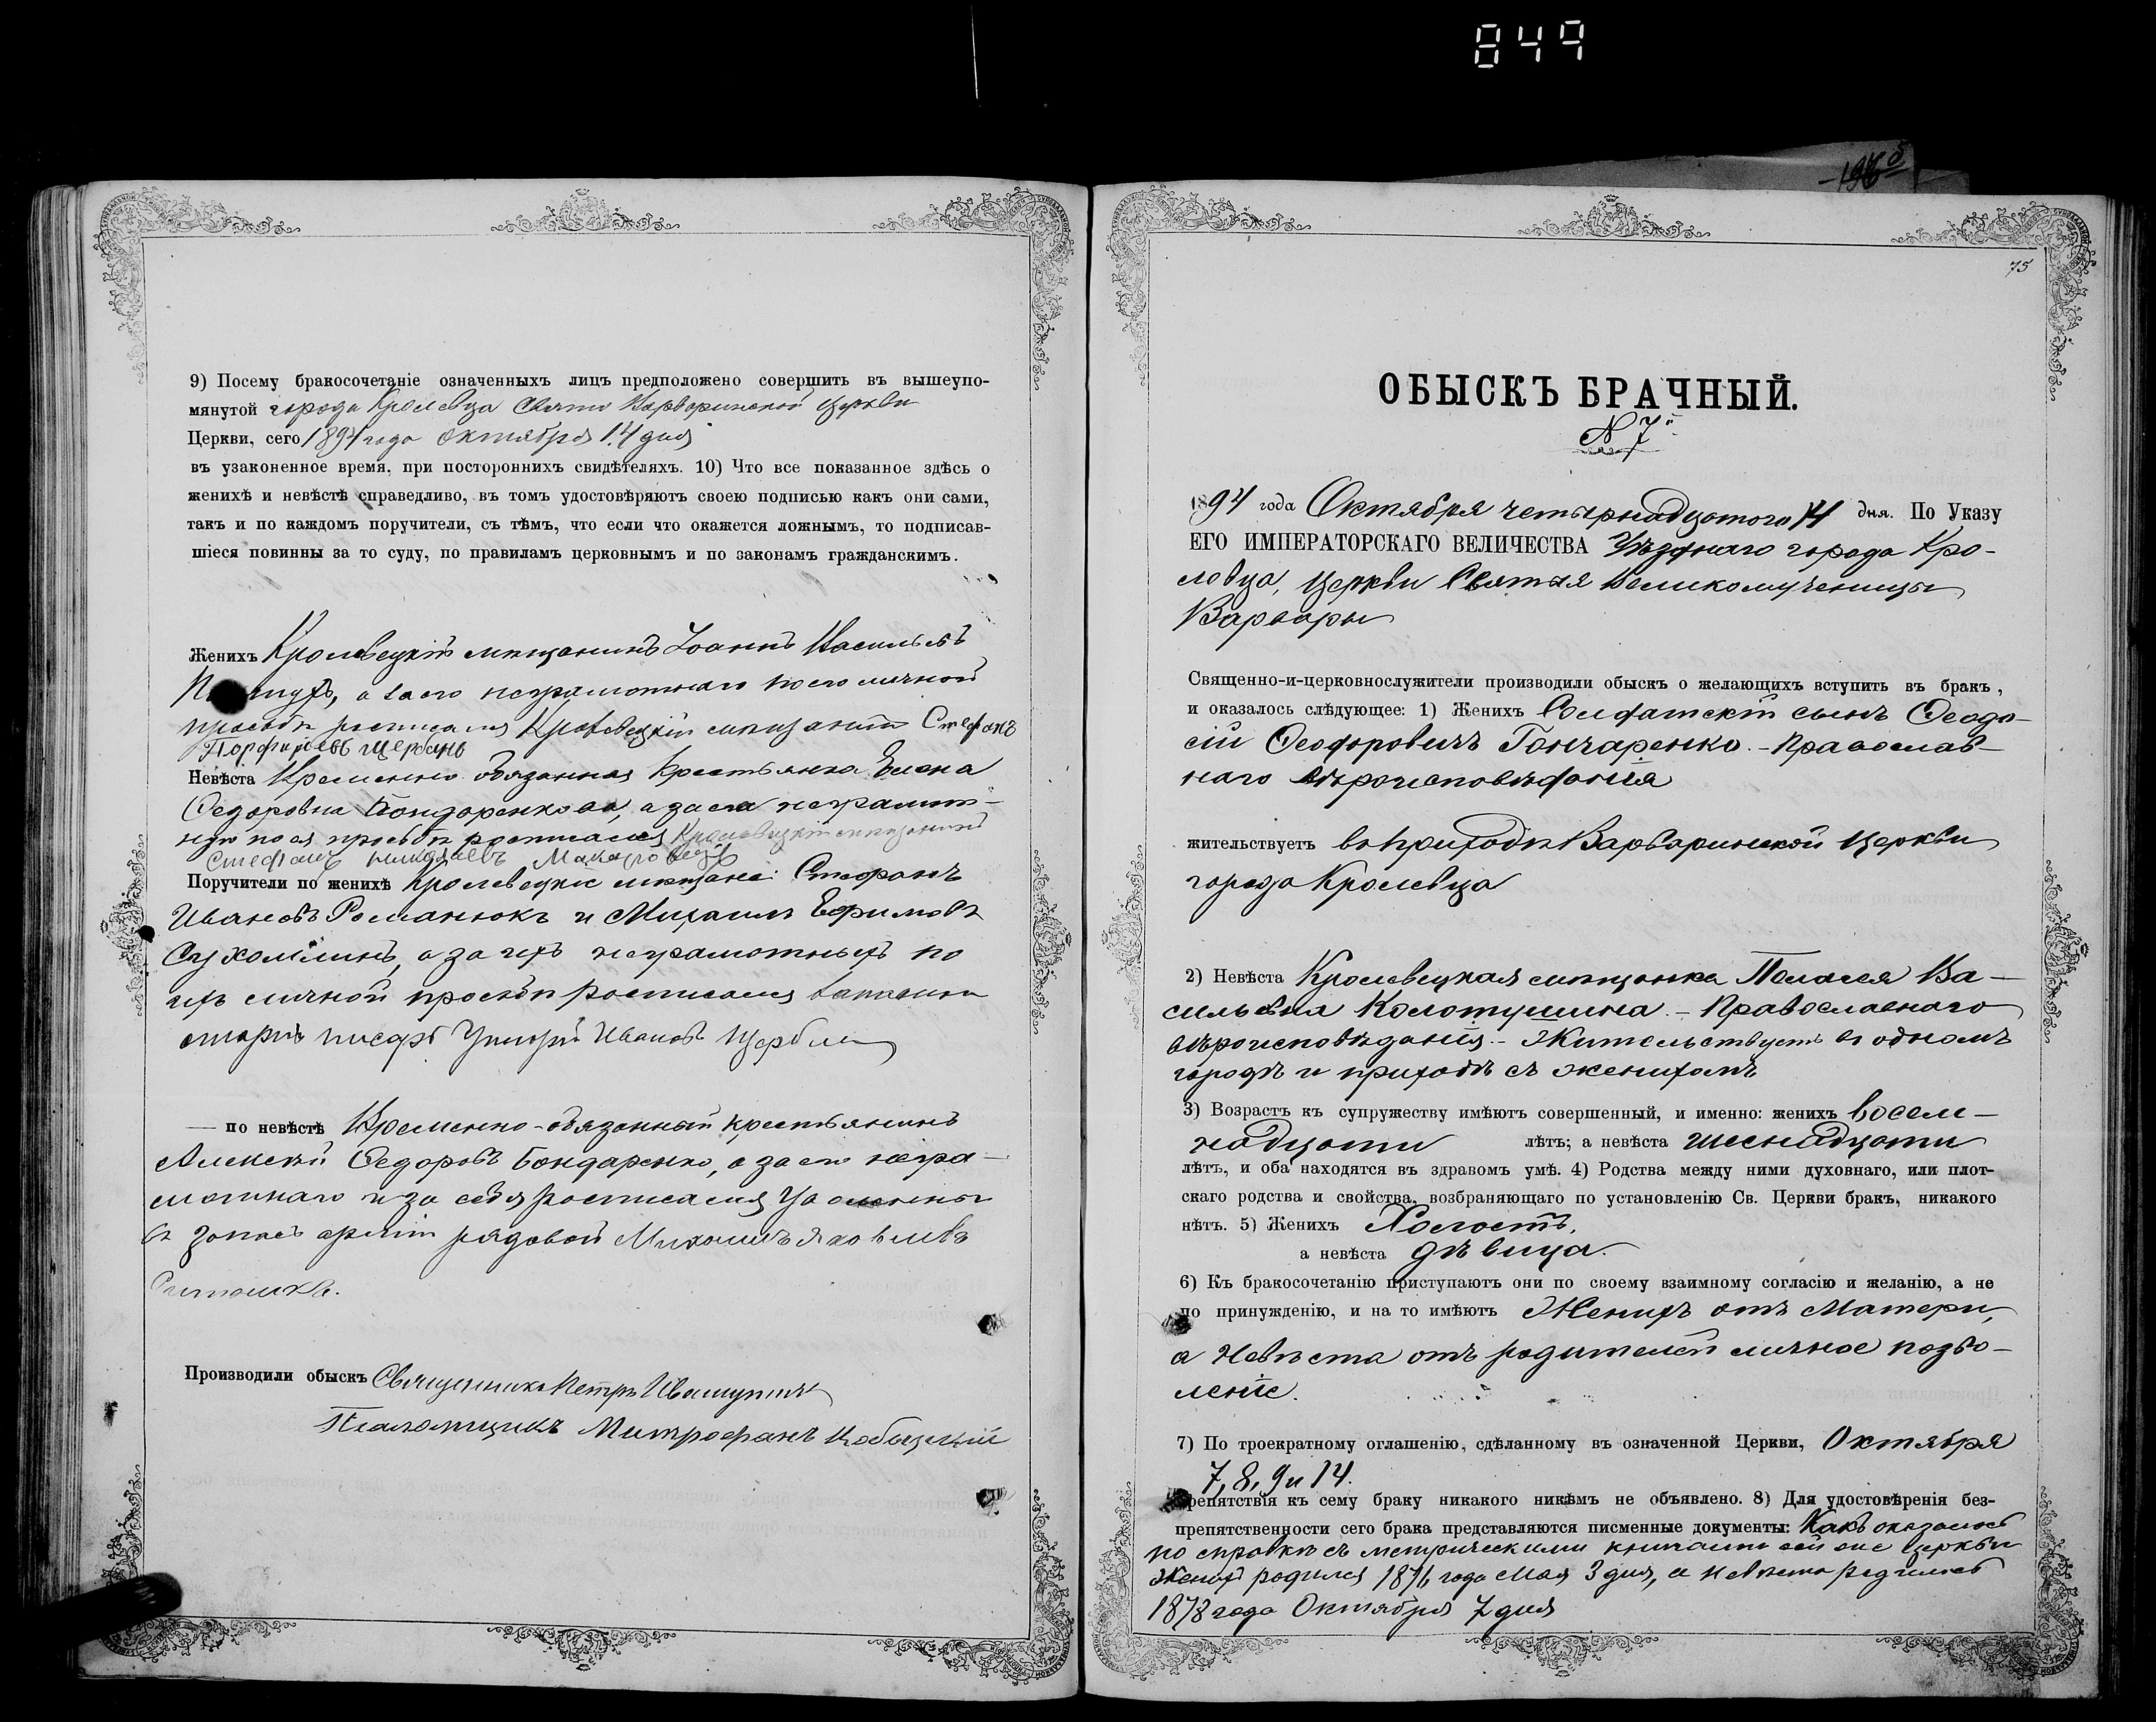 849
196
9) Посему бракосочетаніе означенныхъ лицъ предположено совершить въ вышеупо-
мянутой города Кролевца Свято Варваринской церкви
Церкви, сего 1894 года Октября 14 дня
въ узаконенное время, при постороннихъ свидѣтеляхъ. 10) Что все показанное здѣсь о
женихѣ и невѣстѣ справедливо, въ томъ удостовѣряютъ своею подписью какъ они сами,
такъ и по каждомъ поручители, съ тѣмъ, что если что окажется ложнымъ, то подписав-
шіеся повинны за то суду, по правиламъ церковнымъ и по законамъ гражданскимъ.
Женихъ Кролевецкій мѣщанинъ Іоаннъ Васильевъ
а за его неграмотнаго по его личной
просьбѣ росписался Кролевецкій мѣщанинъ Стефанъ
Порфирьевъ Щербань
Невѣста Временно обязанная крестьянка Елена
Ѳедоровна Бондаренкова, а за нея неграмот-
ную по ея просьбѣ росписался Кролевецкій мѣщанинъ
Стефанъ Николаевъ
Поручители по женихѣ Кролевецкіе мѣщане: Стефанъ
Ивановъ Романюкъ и Михаилъ Ефимовъ
Сухомлинъ, а за ихъ неграмотныхъ по
ихъ личной просьбѣ росписался запасный
старшій писарь Иванов
— по невѣстѣ Временно-обязанный крестьянинъ
Алексѣй Ѳедоровъ Бондаренко, а за его негра-
мотнаго и за себя росписался уволенный
въ запасъ арміи рядовой Михаилъ Яковлевъ
Производили обыскъ Священникъ Петръ
Псаломщикъ Митрофанъ
75
ОБЫСКЪ БРАЧНЫЙ.
№ 7й
1894 года Октября четырнадцатого 14 дня. По Указу
ЕГО ИМПЕРАТОРСКАГО ВЕЛИЧЕСТВА Уѣзднаго города Кро-
левца, Церкви Святыя Великомученицы
Варвары
Священно-и-церковнослужители производили обыскъ о желающихъ вступить въ бракъ,
и оказалось слѣдующее: 1) Женихъ Солдатскій сынъ Ѳеодо-
сій Ѳеодоровичъ Гончаренко. – Православ-
наго вѣроисповѣданія
жительствуетъ въ приходѣ Варваринской Церкви
города Кролевца
2) Невѣста Кролевецкая мѣщанка Пелагея Ва-
сильевна Колотушина. – Православнаго
вѣроисповѣданія. – Жительствуетъ въ одномъ
городѣ и приходѣ съ женихомъ
3) Возрастъ къ супружеству имѣютъ совершенный, и именно: женихъ восем-
надцати лѣтъ; а невѣста шеснадцати
лѣтъ, и оба находятся въ здравомъ умѣ. 4) Родства между ними духовнаго, или плот-
скаго родства и свойства, возбраняющаго по установленію Св. Церкви бракъ, никакого
нѣтъ. 5) Женихъ Холостъ,
а невѣста дѣвица.
6) Къ бракосочетанію приступаютъ они по своему взаимному согласію и желанію, а не
по принужденію, и на то имѣютъ Женихъ отъ Матери,
а Невѣста отъ родителей личное позво-
леніе.
7) По троекратному оглашенію, сдѣланному въ означенной Церкви, Октября
7, 8, 9 и 14.
препятствія къ сему браку никакого никѣмъ не объявлено. 8) Для удостовѣренія без-
препятственности сего брака представляются писменные документы: Какъ оказалось
по справкѣ съ метрическими книгами сей же церкви
Женихъ родился 1876 года Мая 3 дня, а Невѣста родилась
1878 года Октября 7 дня